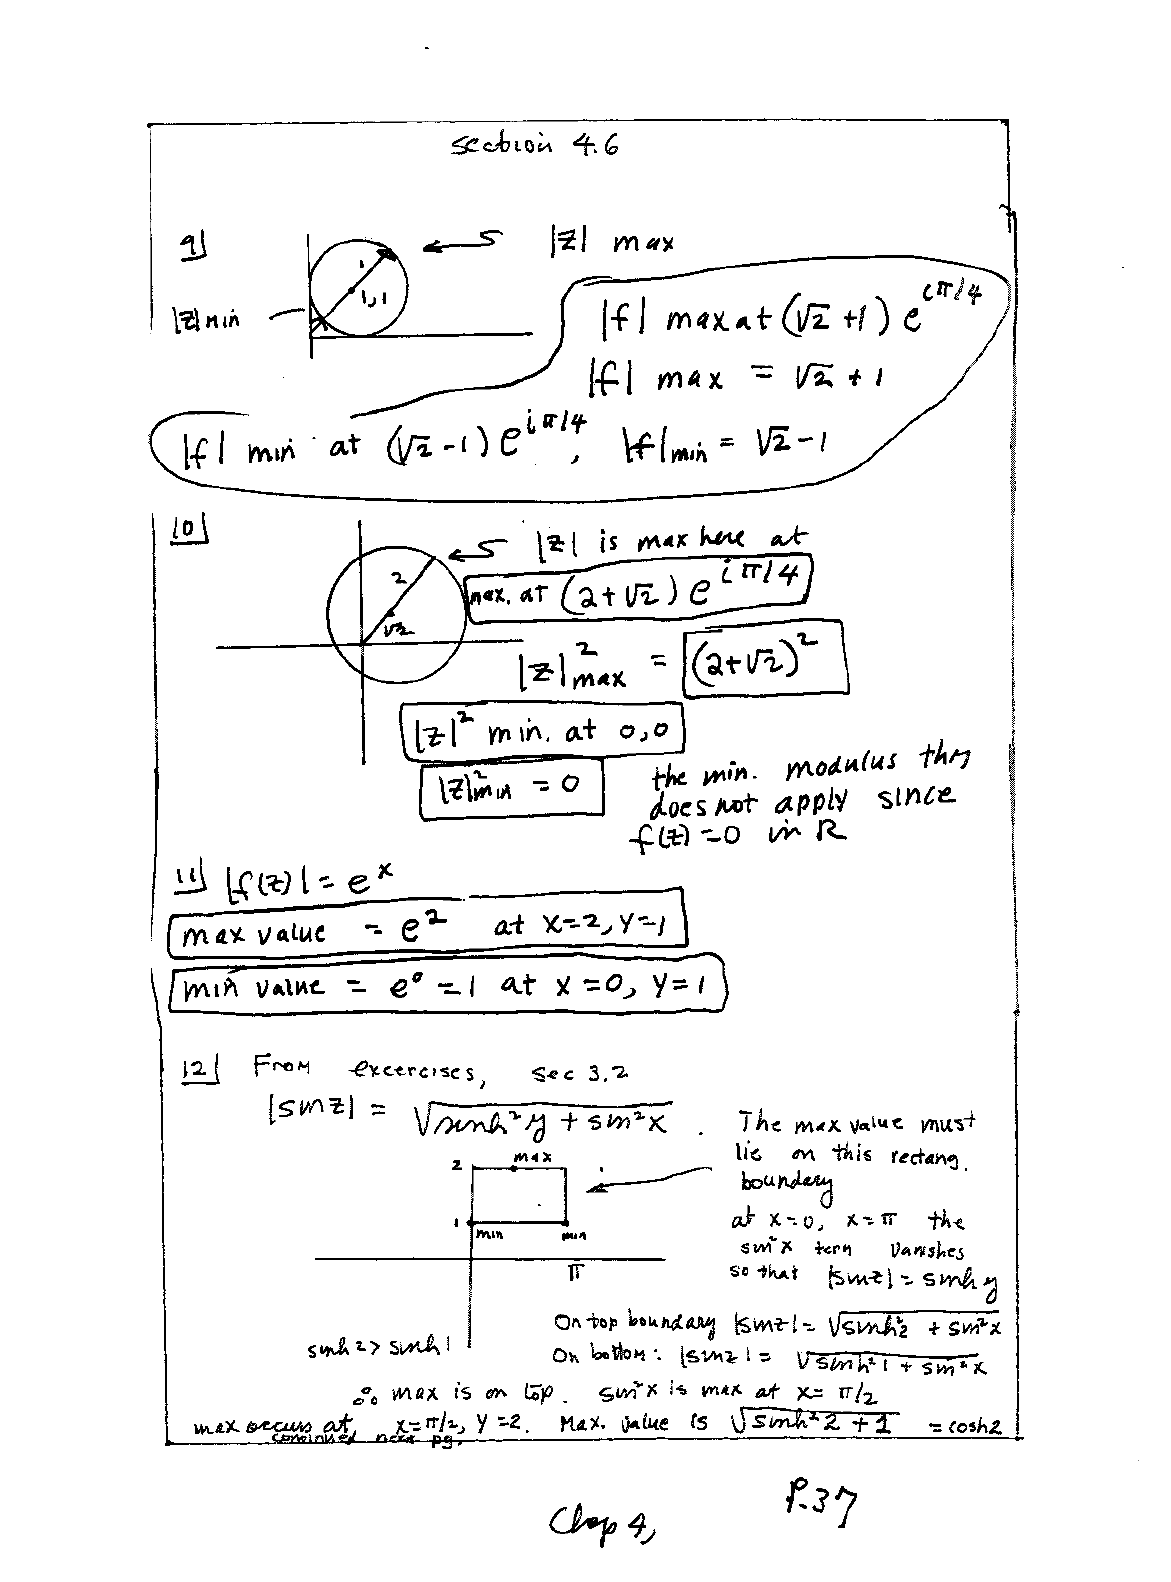 Section 4.6
9
|z| max
1
1,1
|z| min
|f| max at (√2 +1) e^{iπ/4}
|f| max = √2 + 1
|f| min at (√2 -1) e^{iπ/4}, |f|min = √2 -1
10
|z| is max here at
2
√2
max. at (2+√2) e^{iπ/4}
|z|²max = (2+√2)²
|z|² min. at 0,0
|z|²min = 0
the min. modulus thm
does not apply since
f(z) = 0 in R
11 |f(z)| = e^x
max value = e² at x=2, y=1
min value = e⁰ = 1 at x=0, y=1
12 From excercises, sec 3.2
|sin z| = √sinh²y + sin²x .
The max value must
lie on this rectang.
boundary
2
max
1
min
min
π
at x=0, x=π the
sin²x term vanishes
so that |sin z| = sinh y
On top boundary |sin z| = √sinh²2 + sin²x
sinh 2 > sinh 1
On bottom: |sin z| = √sinh²1 + sin²x
∴ max is on top. sin²x is max at x= π/2
max occurs at x=π/2, y=2. Max. value is √sinh²2 +1 = cosh2
continued next pg.
P.37
Chap 4,